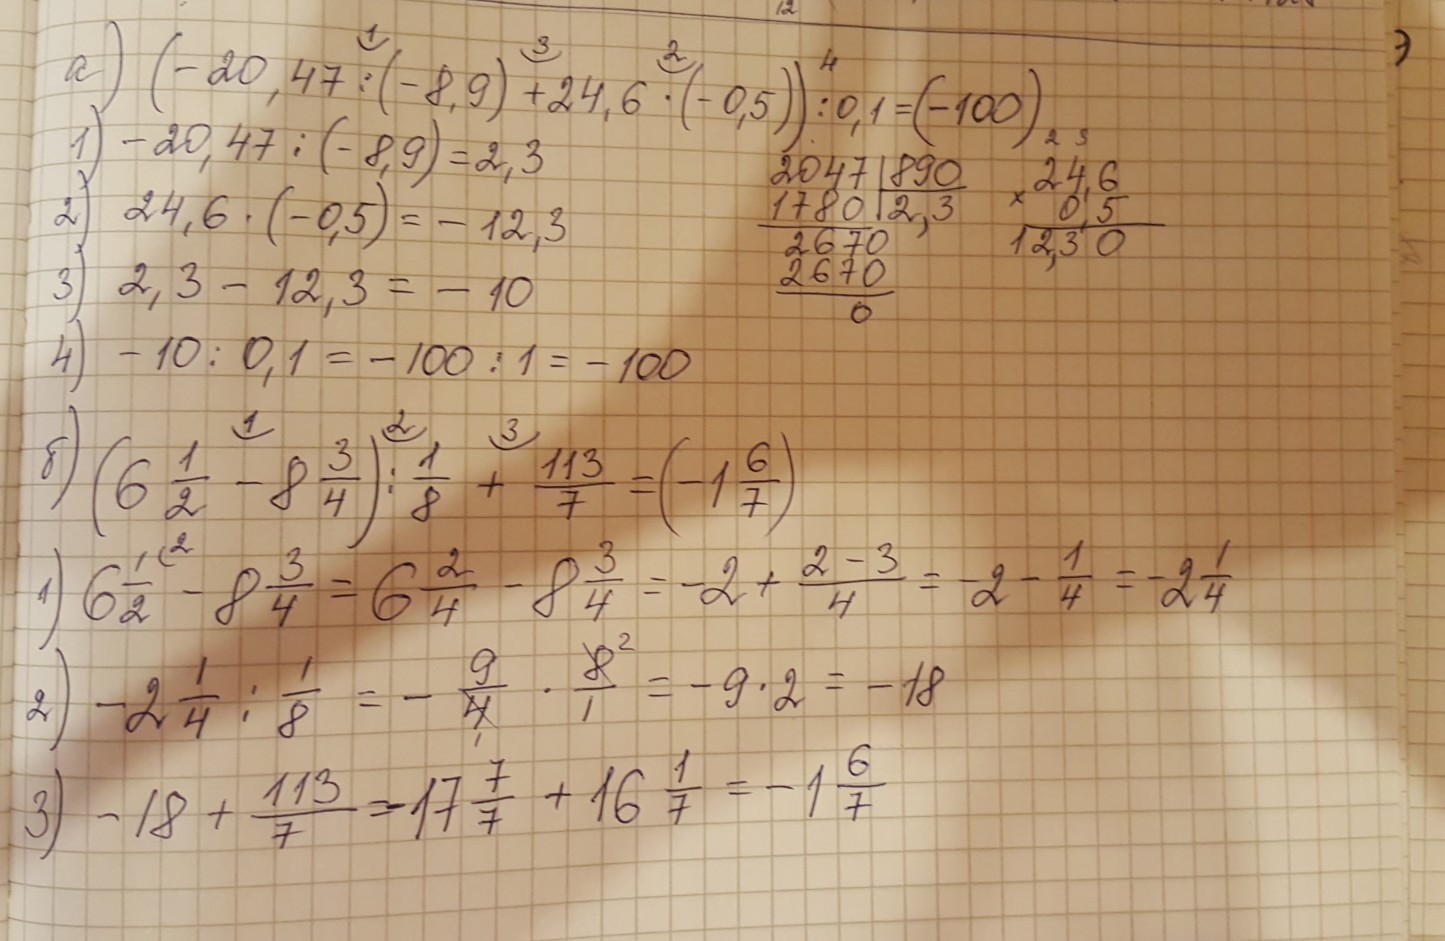 12
а) (-20,47:(-8,9)+24,6·(-0,5)):0,1=(-100)
1 3 2 4
1) -20,47:(-8,9)=2,3
2) 24,6·(-0,5)=-12,3
3) 2,3-12,3=-10
4) -10:0,1=-100:1=-100
2047|890
1780|2,3
2670
2670
0
2 3
24,6
× 0,5
12,30
б) (6 1/2 - 8 3/4) : 1/8 + 113/7 = (-1 6/7)
1 2 3
1) 6 1/2 (2 - 8 3/4 = 6 2/4 - 8 3/4 = -2 + 2-3/4 = -2 - 1/4 = -2 1/4
2) -2 1/4 : 1/8 = - 9/4 1 · 8 2/1 = -9·2 = -18
3) -18 + 113/7 = -17 7/7 + 16 1/7 = -1 6/7